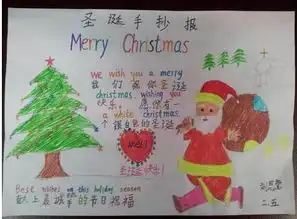 圣诞手抄报
Merry Christmas
we wish you a merry
我们祝你圣诞
christmas, wishing you
快乐，愿你有一
a white christmas
个银白色的圣诞
圣诞快乐！
Best wishes on this holiday season
献上最诚挚的节日祝福
二、五